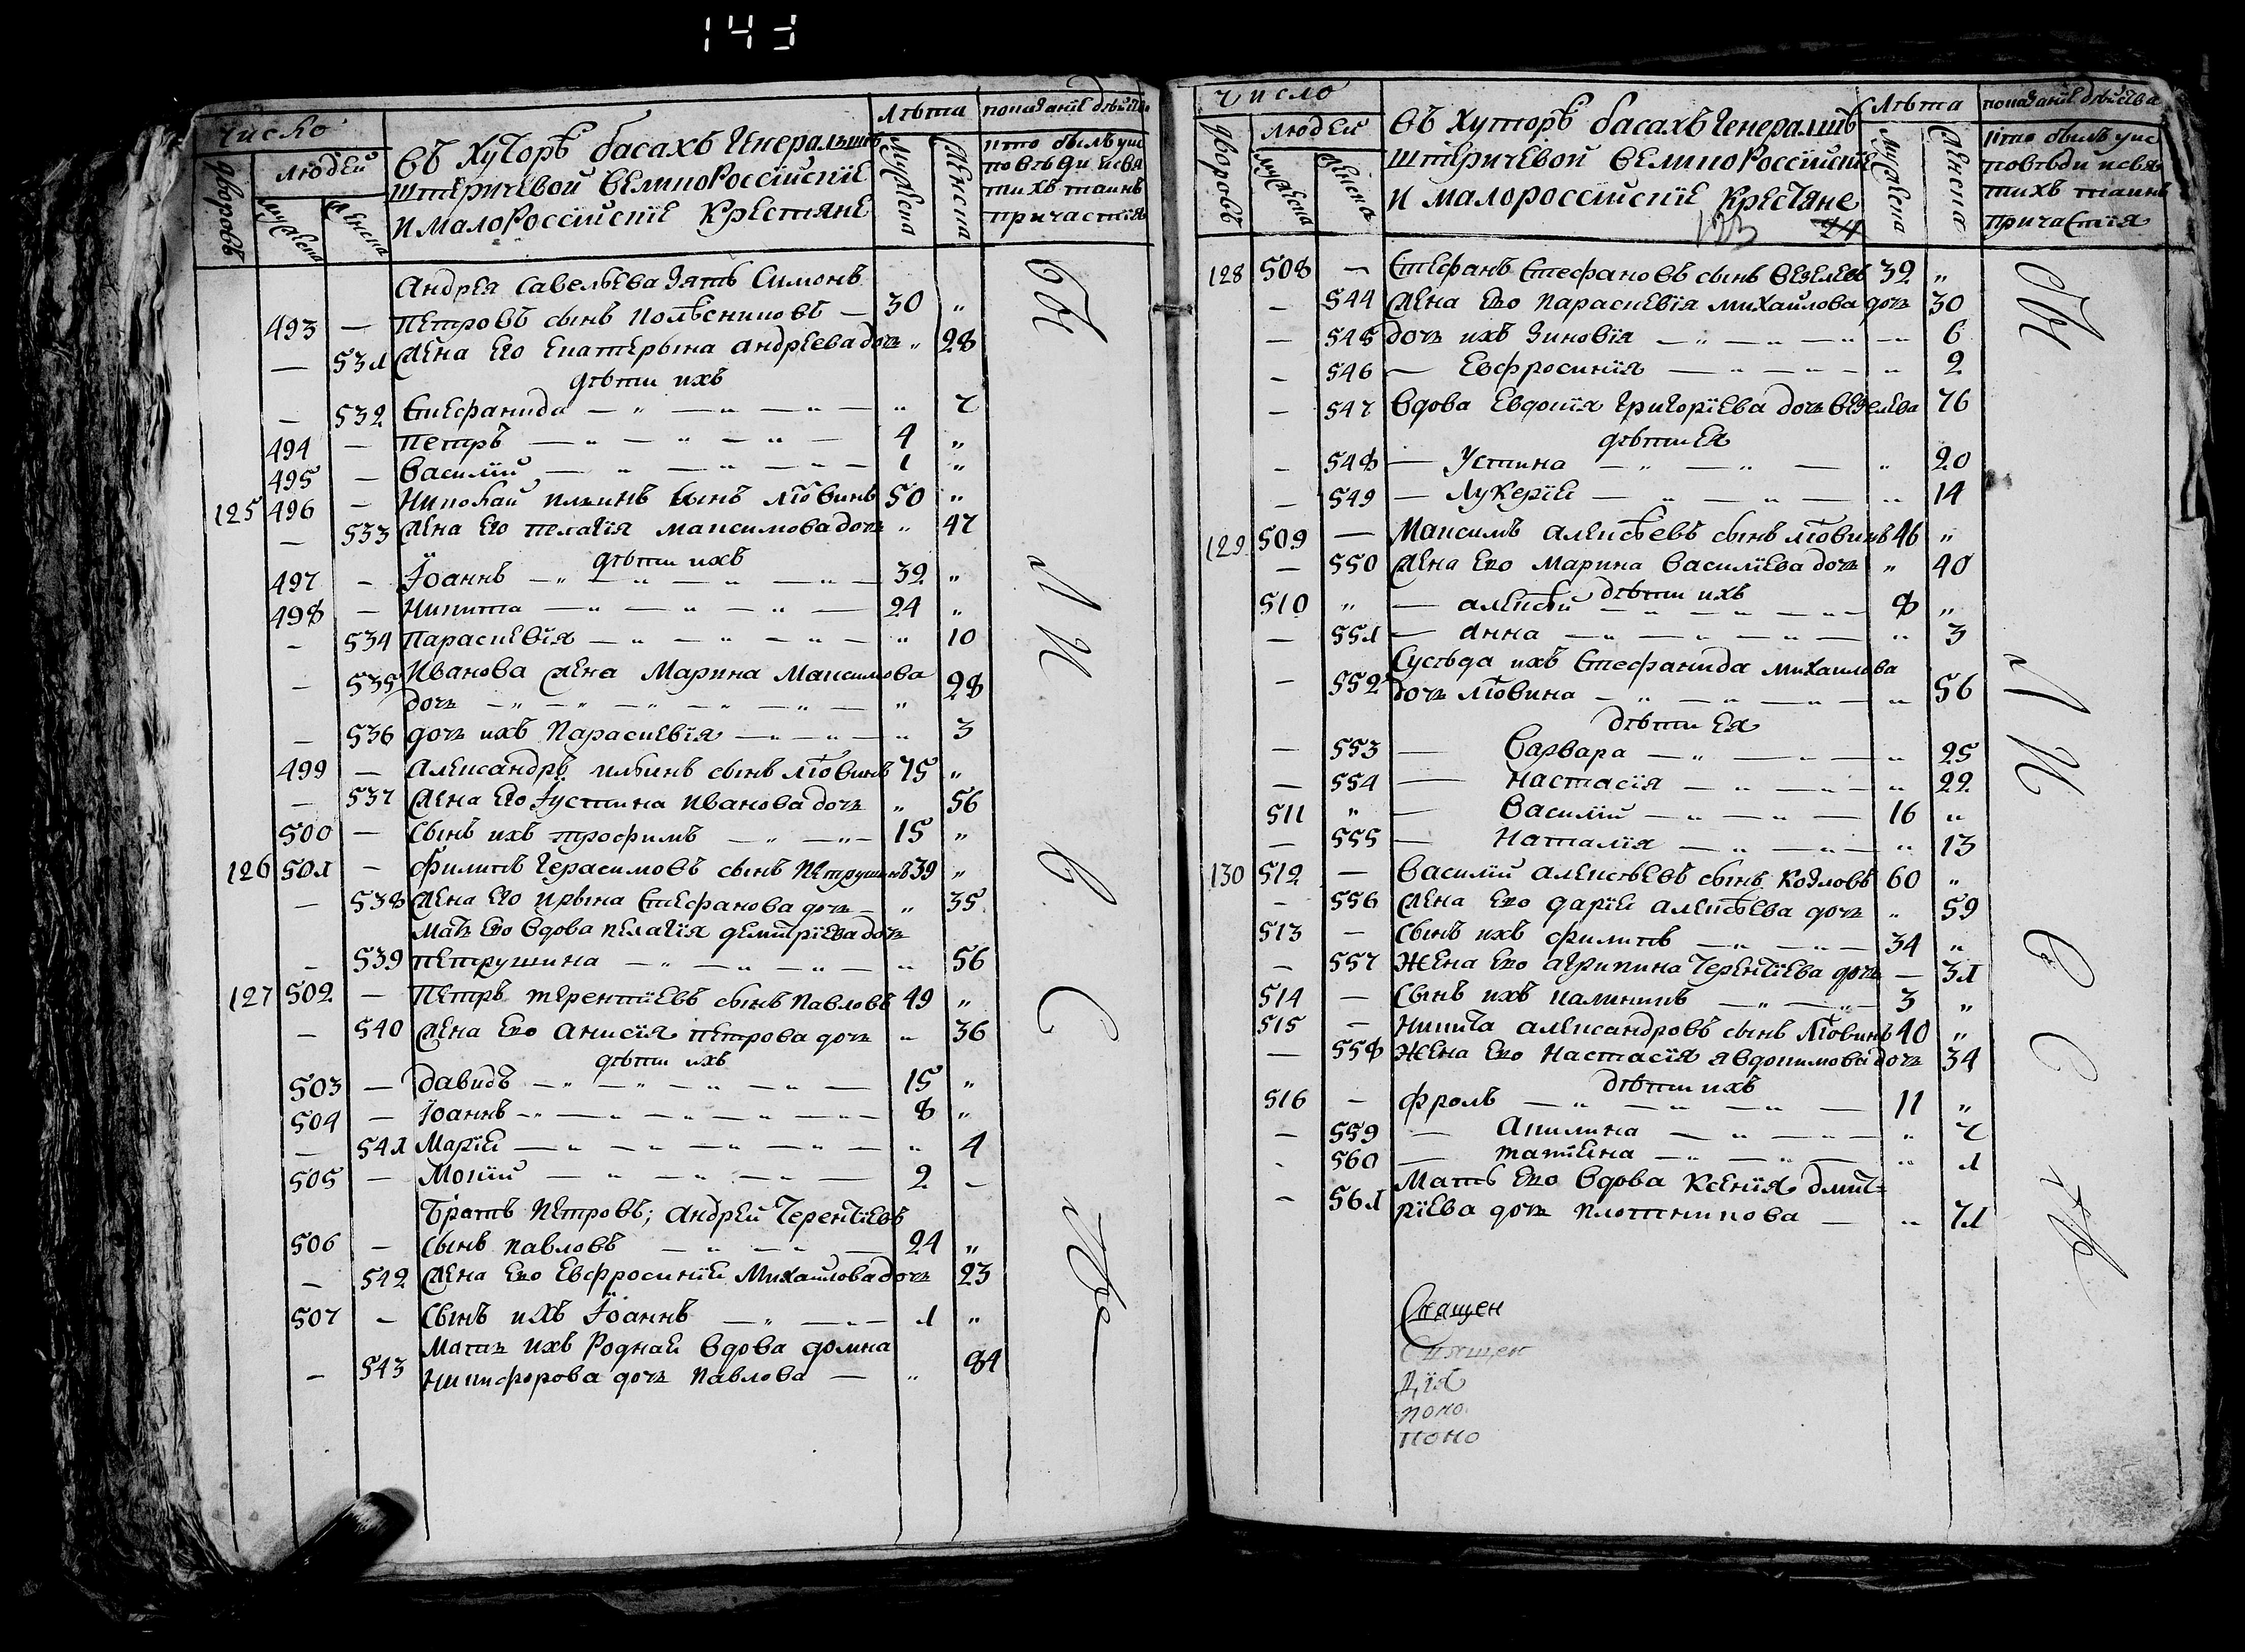 143
число
людей
дворовъ
мужеска
женска
въ Хуторѣ басахъ Генеральши
штеричевой великоРоссїйскїе
и малоРоссїйскїе Крестяне
Лѣта
мужеска
женска
показанїе дѣйства
кто былъ уис
повѣди исвя
тихъ таинъ
причастїя
Андрея савельева зять Симонъ
493 — Петровъ сынъ — 30 „
— 531 жена его екатерына андреева дочь „ 28
дѣти ихъ
— 532 Стефанида — „ — „ — „ — „ 7
494 — петръ — „ — „ — „ — 4 „
495 — василїй — „ — „ — „ — 1 „
125 496 — Николай ильинъ сынъ лювинъ 50 „
— 533 жена его пелагїя максимова дочь „ 47
дѣти ихъ
497 — Їоаннъ — „ — „ — „ — „ — 32 „
498 — Никита — „ — „ — „ — 24 „
— 534 Параскевїя — „ — „ — „ — „ 10
— 535 Иванова жена Марина Максимова
дочь — „ — „ — „ — „ — „ — „ 28
— 536 дочь ихъ Параскевїя — „ — „ — „ 3
499 — александръ ильинъ сынъ лювинъ 75 „
— 537 жена его Їустина иванова дочь „ 56
500 — сынъ ихъ трофимъ — „ — „ — 15 „
126 501 — филипъ герасимовъ сынъ Петрушинъ 39 „
— 538 жена его ирына стефанова дочь — „ 35
Мать его вдова пелагїя демитрїева дочь
— 539 петрушина — „ — „ — „ — „ 56
127 502 — Петръ терентїевъ сынъ павловъ 49 „
— 540 жена его анисїя петрова дочь „ 36
дѣти ихъ
503 — давидъ — „ — „ — „ — „ — 15 „
504 — Їоаннъ — „ — „ — „ — „ — „ — 8 „
— 541 Марїя — „ — „ — „ — „ — „ 4
505 — Мокїй — „ — „ — „ — 2 –
Братъ петровъ; андрей Терентїевъ
506 — сынъ павловъ — „ — „ — 24 „
— 542 жена его евфросинїя Михайлова дочь 23
507 — сынъ ихъ Їоаннъ — „ — „ — 1 „
Мать ихъ Родная вдова домна
— 543 Никифорова дочь Павлова — „ 84
бы
ли
в
с
число
людей
дворовъ
мужеска
женска
въ хуторѣ басахъ Генералшы
штеричевой великоРоссїйскїе
и малороссїйскїе Крестяне
123 24
Лѣта
мужеска
женска
показанїе дѣйства
кто былъ уис
повѣди исвя
тихъ таинъ
причастїя
128 508 — Стефанъ стефановъ сынъ везелевъ 32 „
— 544 жена его параскевїя михайлова дочь 30
— 545 дочь ихъ зиновїя — „ — „ — „ — „ 6
— 546 — евфросинїя — „ — „ — „ 2
— 547 вдова евдокїя григорїева дочь везелева 76
дѣти ея
— 548 — Устина — „ — „ — „ 20
— 549 — Лукерїя — „ — „ — „ 14
129 509 — Максимъ алексѣевъ сынъ лювинъ 46 „
— 550 жена его марина василїева дочь „ 40
дѣти ихъ
510 „ — алексѣй — „ — „ — „ — 8 „
— 551 — анна — „ — „ — „ — „ 3
Сусѣда ихъ стефанида михаилова
— 552 дочь лювина — „ — „ — „ — „ 56
дѣти ея
— 553 — варвара — „ — „ — „ 25
— 554 — настасїя — „ — „ — „ 22
511 „ — василїй — „ — „ — 16 „
— 555 — наталїя — „ — „ — „ 13
130 512 — василїй алексѣевъ сынъ козловъ 60 „
— 556 жена его дарїя алексѣева дочь „ 59
513 — сынъ ихъ филипъ — „ — „ — 34 „
— 557 жена его агрипина Терентїева дочь — 31
514 — сынъ ихъ калиникъ — „ — „ — 3 „
515 — никита александровъ сынъ лювинъ 40 „
— 558 жена его настасїя явдокимова дочь 34
дѣти ихъ
516 — фролъ — „ — „ — „ — 11 „
— 559 — акилина — „ — „ — „ 7
— 560 — татїяна — „ — „ — „ 1
Мать его вдова ксенїя дмит-
— 561 рїева дочь плотникова — „ 71
бы
ли
в
с
Священ
Священ
Дїя
поно
поно